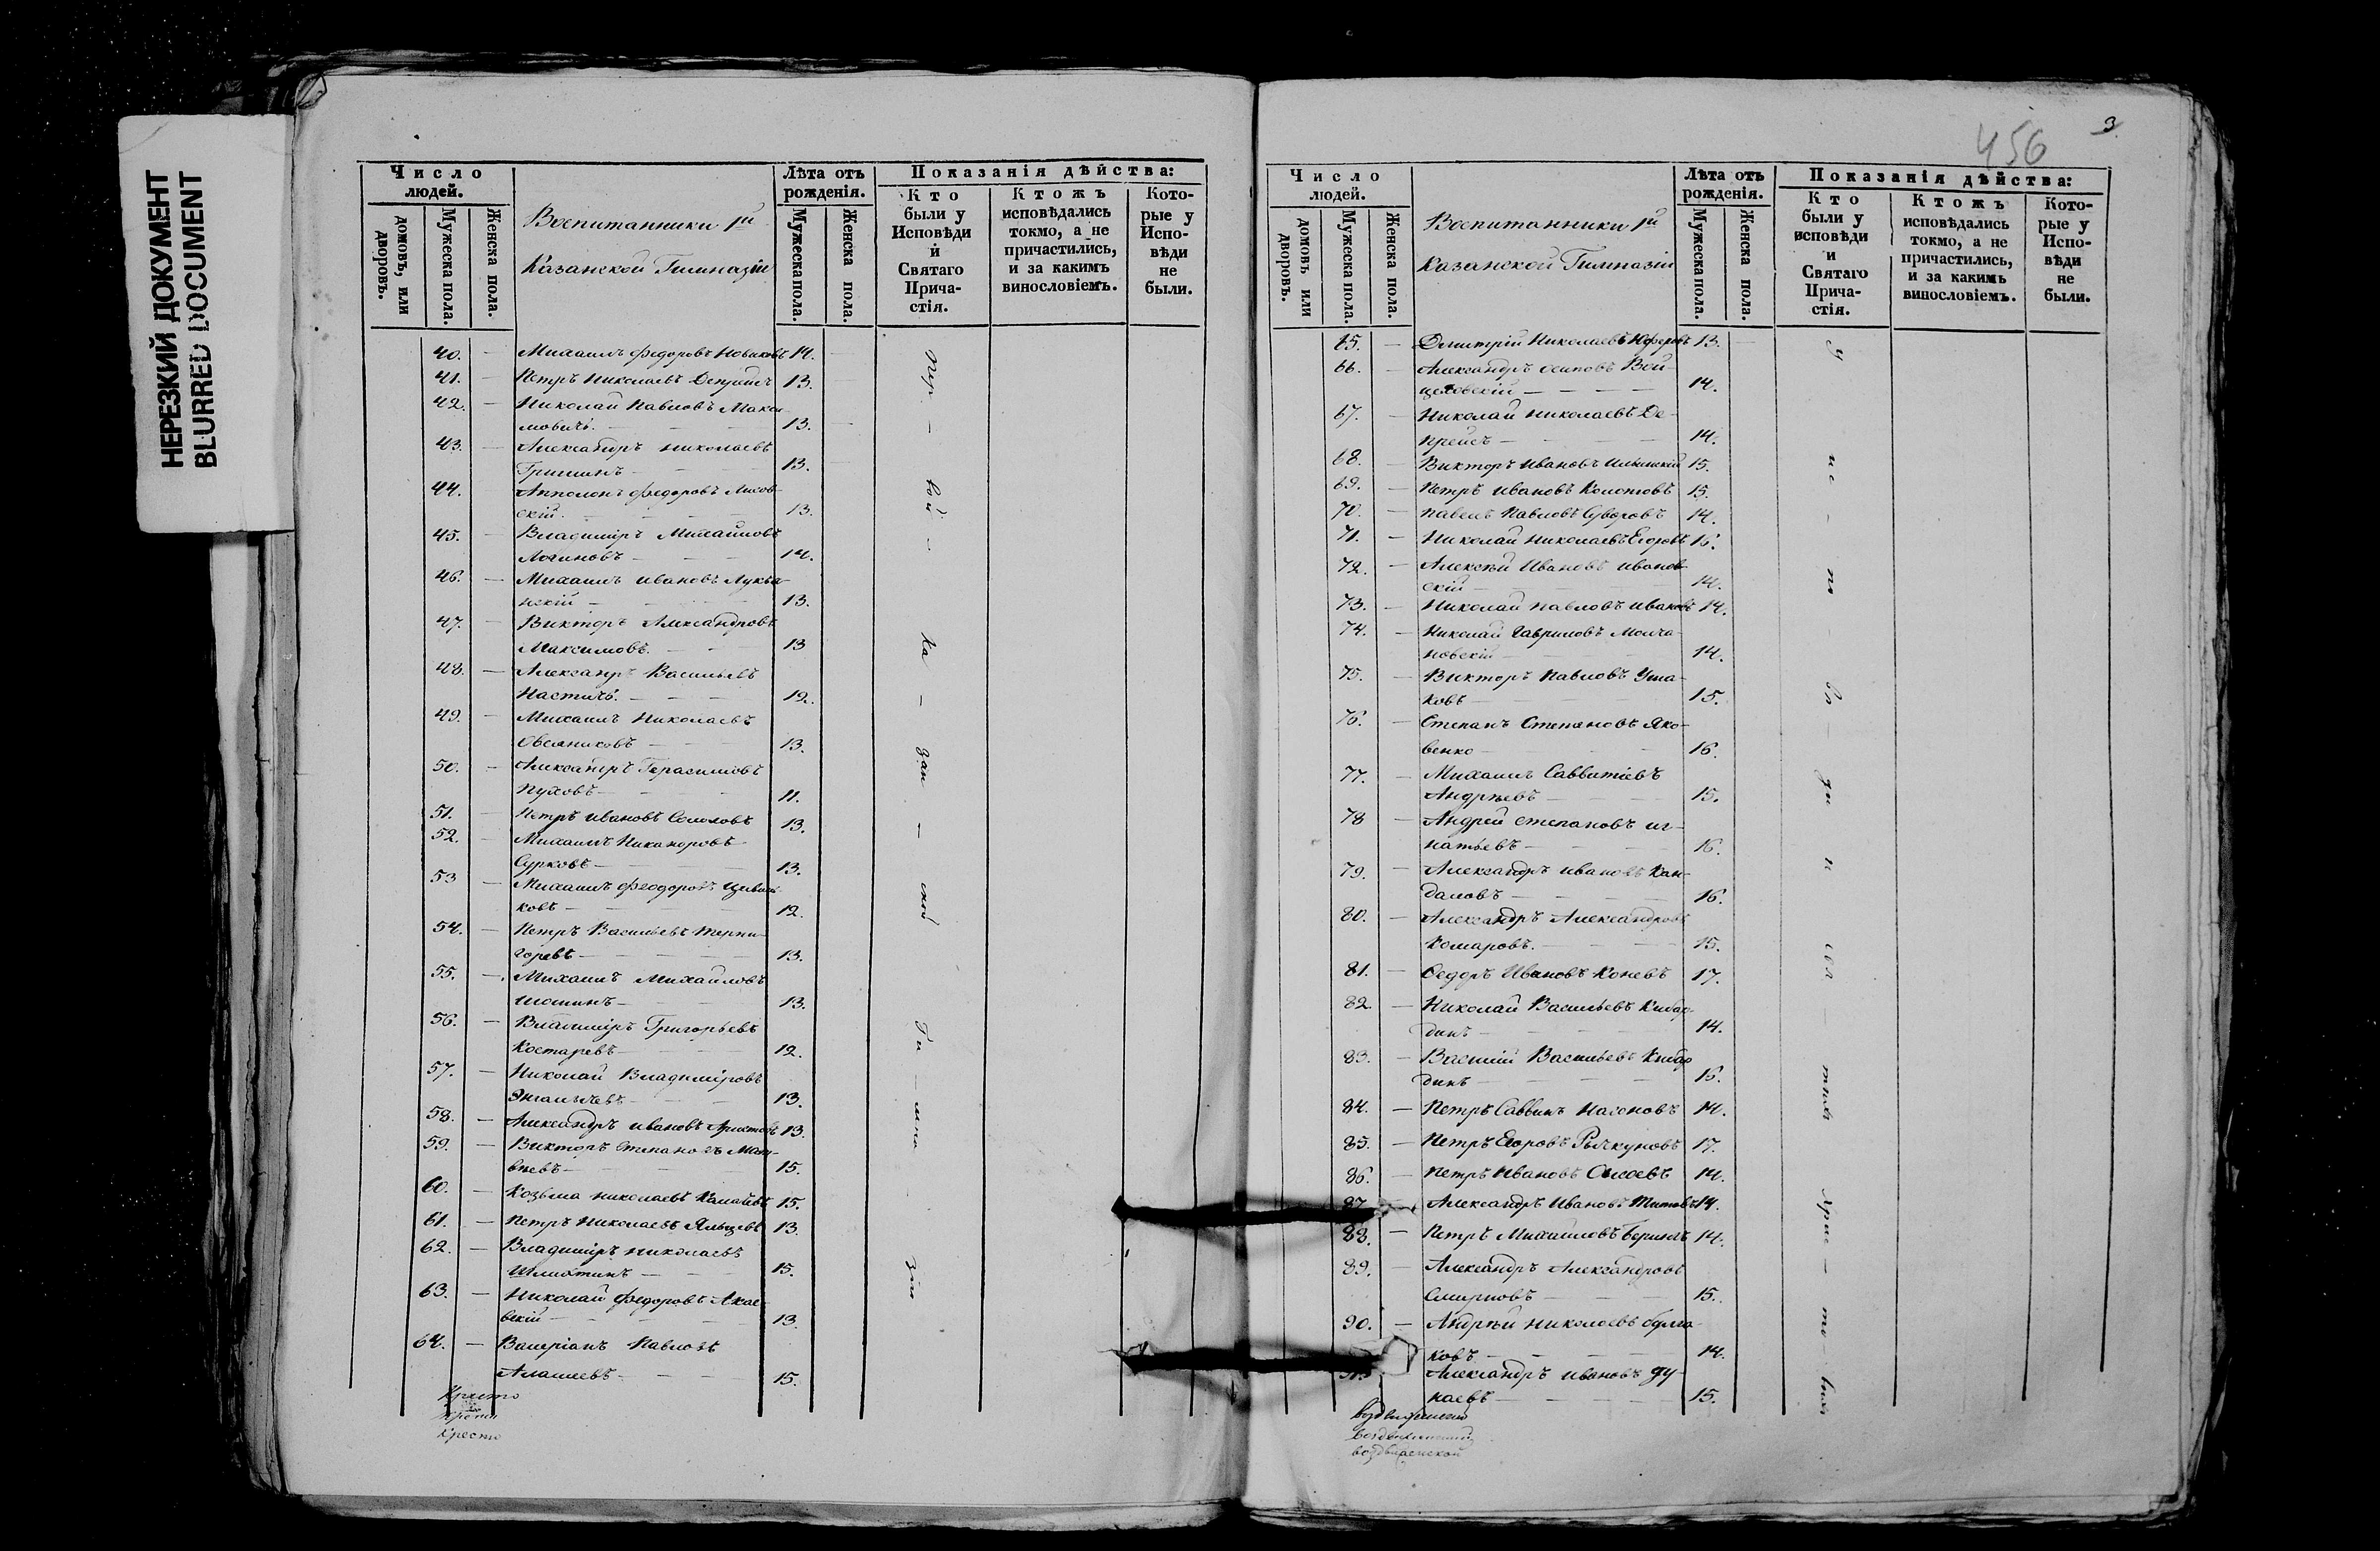 НЕРЕЗКИЙ ДОКУМЕНТ
BLURRED DOCUMENT
Число людей.
домовъ, или дворовъ.
Мужеска пола.
Женска пола.
Воспитанники 1й
Казанской Гимназіи
Лѣта отъ рожденія.
Мужеска пола.
Женска пола.
Показанія дѣйства:
Кто были у Исповѣди и Святаго Причастія.
Ктожъ исповѣдались токмо, а не причастились, и за какимъ винословіемъ.
Которые у Исповѣди не были.
40. — Михаилъ Федоровъ Новиковъ 14. —
41. — Петръ Николаевъ Депрейсъ 13. —
42. — Николай Павловъ Макси-
мовичъ. — 13. —
43. — Александръ Николаевъ
Гришинъ — 13.
44. — Апполонъ Федоровъ Лисов-
скій. — 13.
45. — Владиміръ Михайловъ
Логиновъ — 14.
46. — Михаилъ Ивановъ
нскій — 13.
47. — Викторъ Александровъ
Максимовъ. — 13
48. — Александръ Васильевъ
— 12.
49. — Михаилъ Николаевъ
Овсяниковъ — 13.
50. — Александръ Герасимовъ
Пуховъ — 11.
51. — Петръ Ивановъ Соколовъ 13.
52. — Михаилъ Никаноровъ
Сурковъ — 13.
53 — Михаилъ Феодоровъ
ковъ — 12.
54. — Петръ Васильевъ Терпи-
горевъ — 13.
55. — Михаилъ Михайловъ
Шошинъ — 13.
56. — Владиміръ Григорьевъ
Костаревъ — 12.
57. — Николай Владиміровъ
Энгалычевъ — 13.
58. — Александръ Ивановъ Аристовъ 13.
59. — Викторъ Степановъ Мат-
вѣевъ — 15.
60. — Козьма Николаевъ 15.
61. — Петръ Николаевъ Яльцевъ 13.
62. — Владиміръ Николаевъ
Шлихтинъ — 15.
63. — Николай Федоровъ Акае-
вскій — 13.
64. — Валеріанъ Павловъ
— 15.
пер — вой — Ка — зан — ской — Ги — мна — зіи
Кресто
Кресто
Кресто
456
3.
Число людей.
домовъ или дворовъ.
Мужеска пола.
Женска пола.
Воспитанники 1й
Казанской Гимназіи
Лѣта отъ рожденія.
Мужеска пола.
Женска пола.
Показанія дѣйства:
Кто были у исповѣди и Святаго Причастія.
Ктожъ исповѣдались токмо, а не причастились, и за какимъ винословіемъ.
Которые у Исповѣди не были.
65. — Дмитрій Николаевъ 13. —
66. — Александръ Осиповъ Вой-
цеховскій — 14.
67. — Николай Николаевъ Де-
прейсъ — 14.
68. — Викторъ Ивановъ Ильинскій 15.
69. — Петръ Ивановъ Колотовъ 15.
70. — Павелъ Павловъ Суворовъ 14.
71. — Николай Николаевъ Егоровъ 16.
72. — Алексѣй Ивановъ Иванов-
скій — 14.
73. — Николай Павловъ Ивановъ 14.
74. — Николай Гавриловъ Молча-
новскій — 14.
75. — Викторъ Павловъ Уша-
ковъ — 15.
76. — Степанъ Степановъ Яко-
венко — 16.
77. — Михаилъ Савватіевъ
Андрѣевъ — 15.
78 — Андрей Степановъ Иг-
натьевъ — 16.
79. — Александръ Ивановъ Кан-
даловъ — 16.
80. — Александръ Александровъ
Комаровъ. — 15.
81. — Федоръ Ивановъ Коневъ 17.
82. — Николай Васильевъ Кибар-
динъ — 14.
83. — Василій Васильевъ Кибар-
динъ — 16.
84. — Петръ Саввинъ Насоновъ 14.
85. — Петръ Егоровъ Рычкуновъ 17.
86. — Петръ Ивановъ Сысоевъ 14.
87. — Александръ Ивановъ Титовъ 14.
88. — Петръ Михайловъ 14.
89. — Александръ Александровъ
Смирновъ — 15.
90. — Андрѣй Николаевъ Булга-
ковъ — 14.
91. Александръ Ивановъ Ду-
наевъ — 15.
Воздвиженской
воздвиженской
воздвиженской